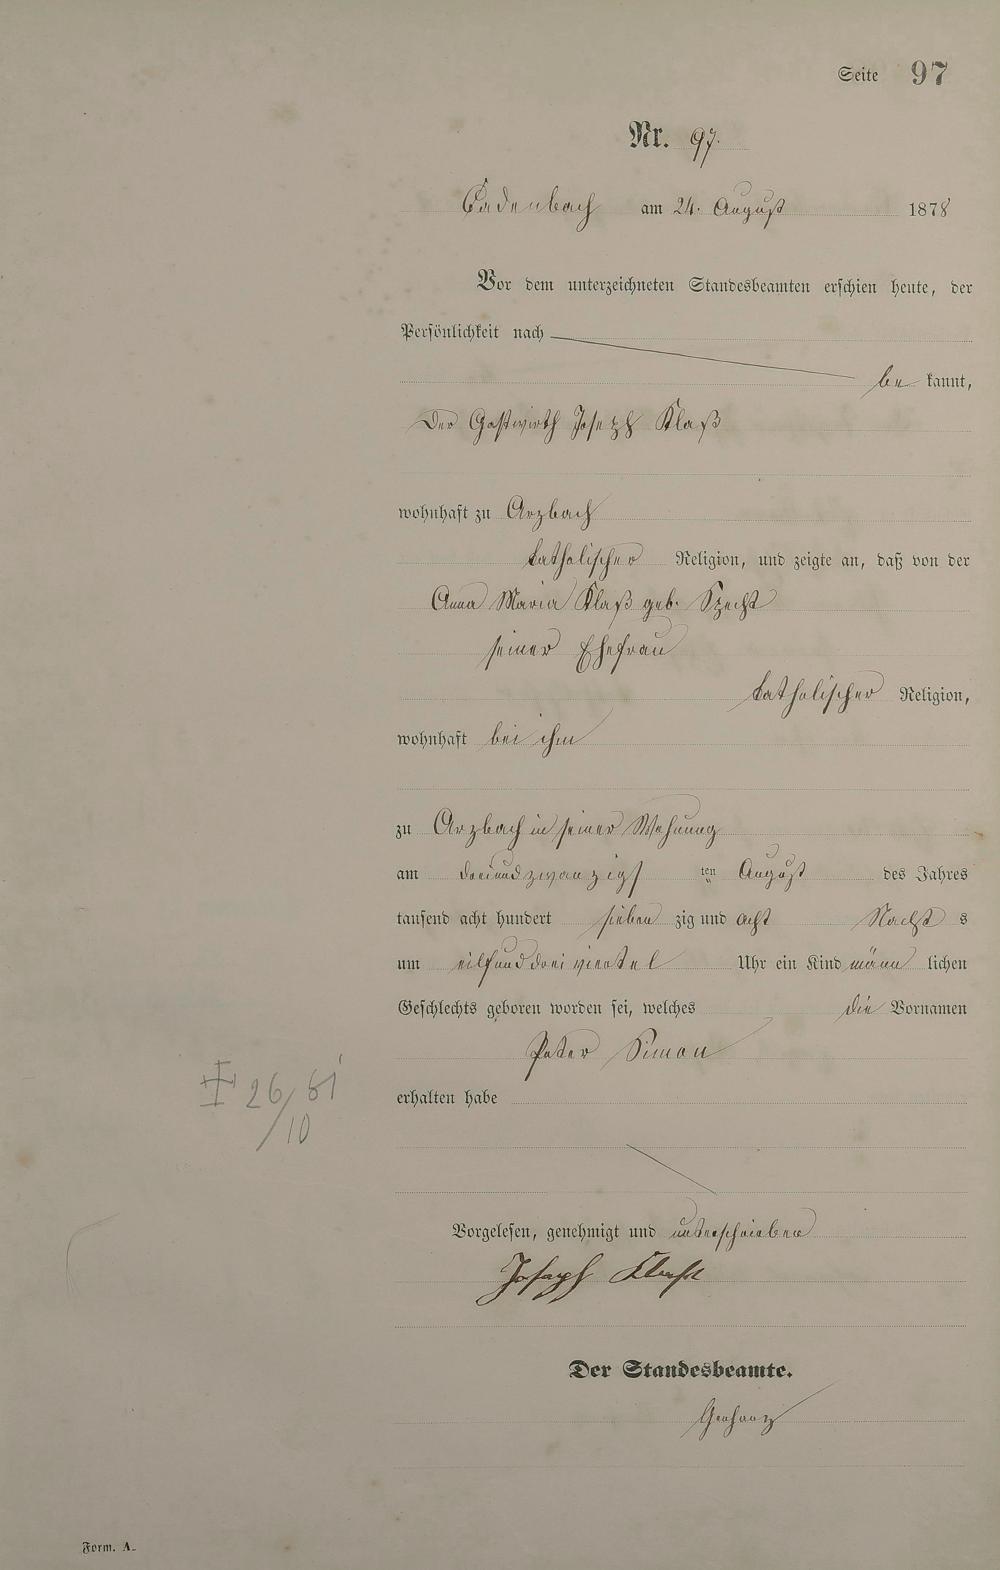 Seite 97
Nr. 97.
Cadenbach am 24. August 1878
Vor dem unterzeichneten Standesbeamten erschien heute, der
Persönlichkeit nach
be kannt,
der Gastwirth Joseph Klaß
wohnhaft zu Arzbach
katholischer Religion, und zeigte an, daß von der
Anna Maria Klaß geb. Specht
seiner Ehefrau
katholischer Religion,
wohnhaft bei ihm
zu Arzbach in seiner Wohnung
am dreiundzwanzigs ten August des Jahres
tausend acht hundert sieben zig und acht Nacht s
um eilfunddreiviertel Uhr ein Kind männ lichen
Geschlechts geboren worden sei, welches die Vornamen
Peter Simon
erhalten habe
26/10 61
Vorgelesen, genehmigt und unterschrieben
Joseph Klaß
Der Standesbeamte.
Form. A.